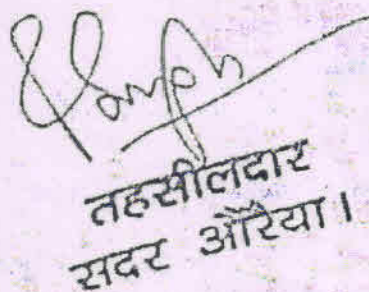 तहसीलदार
सदर औरैया।